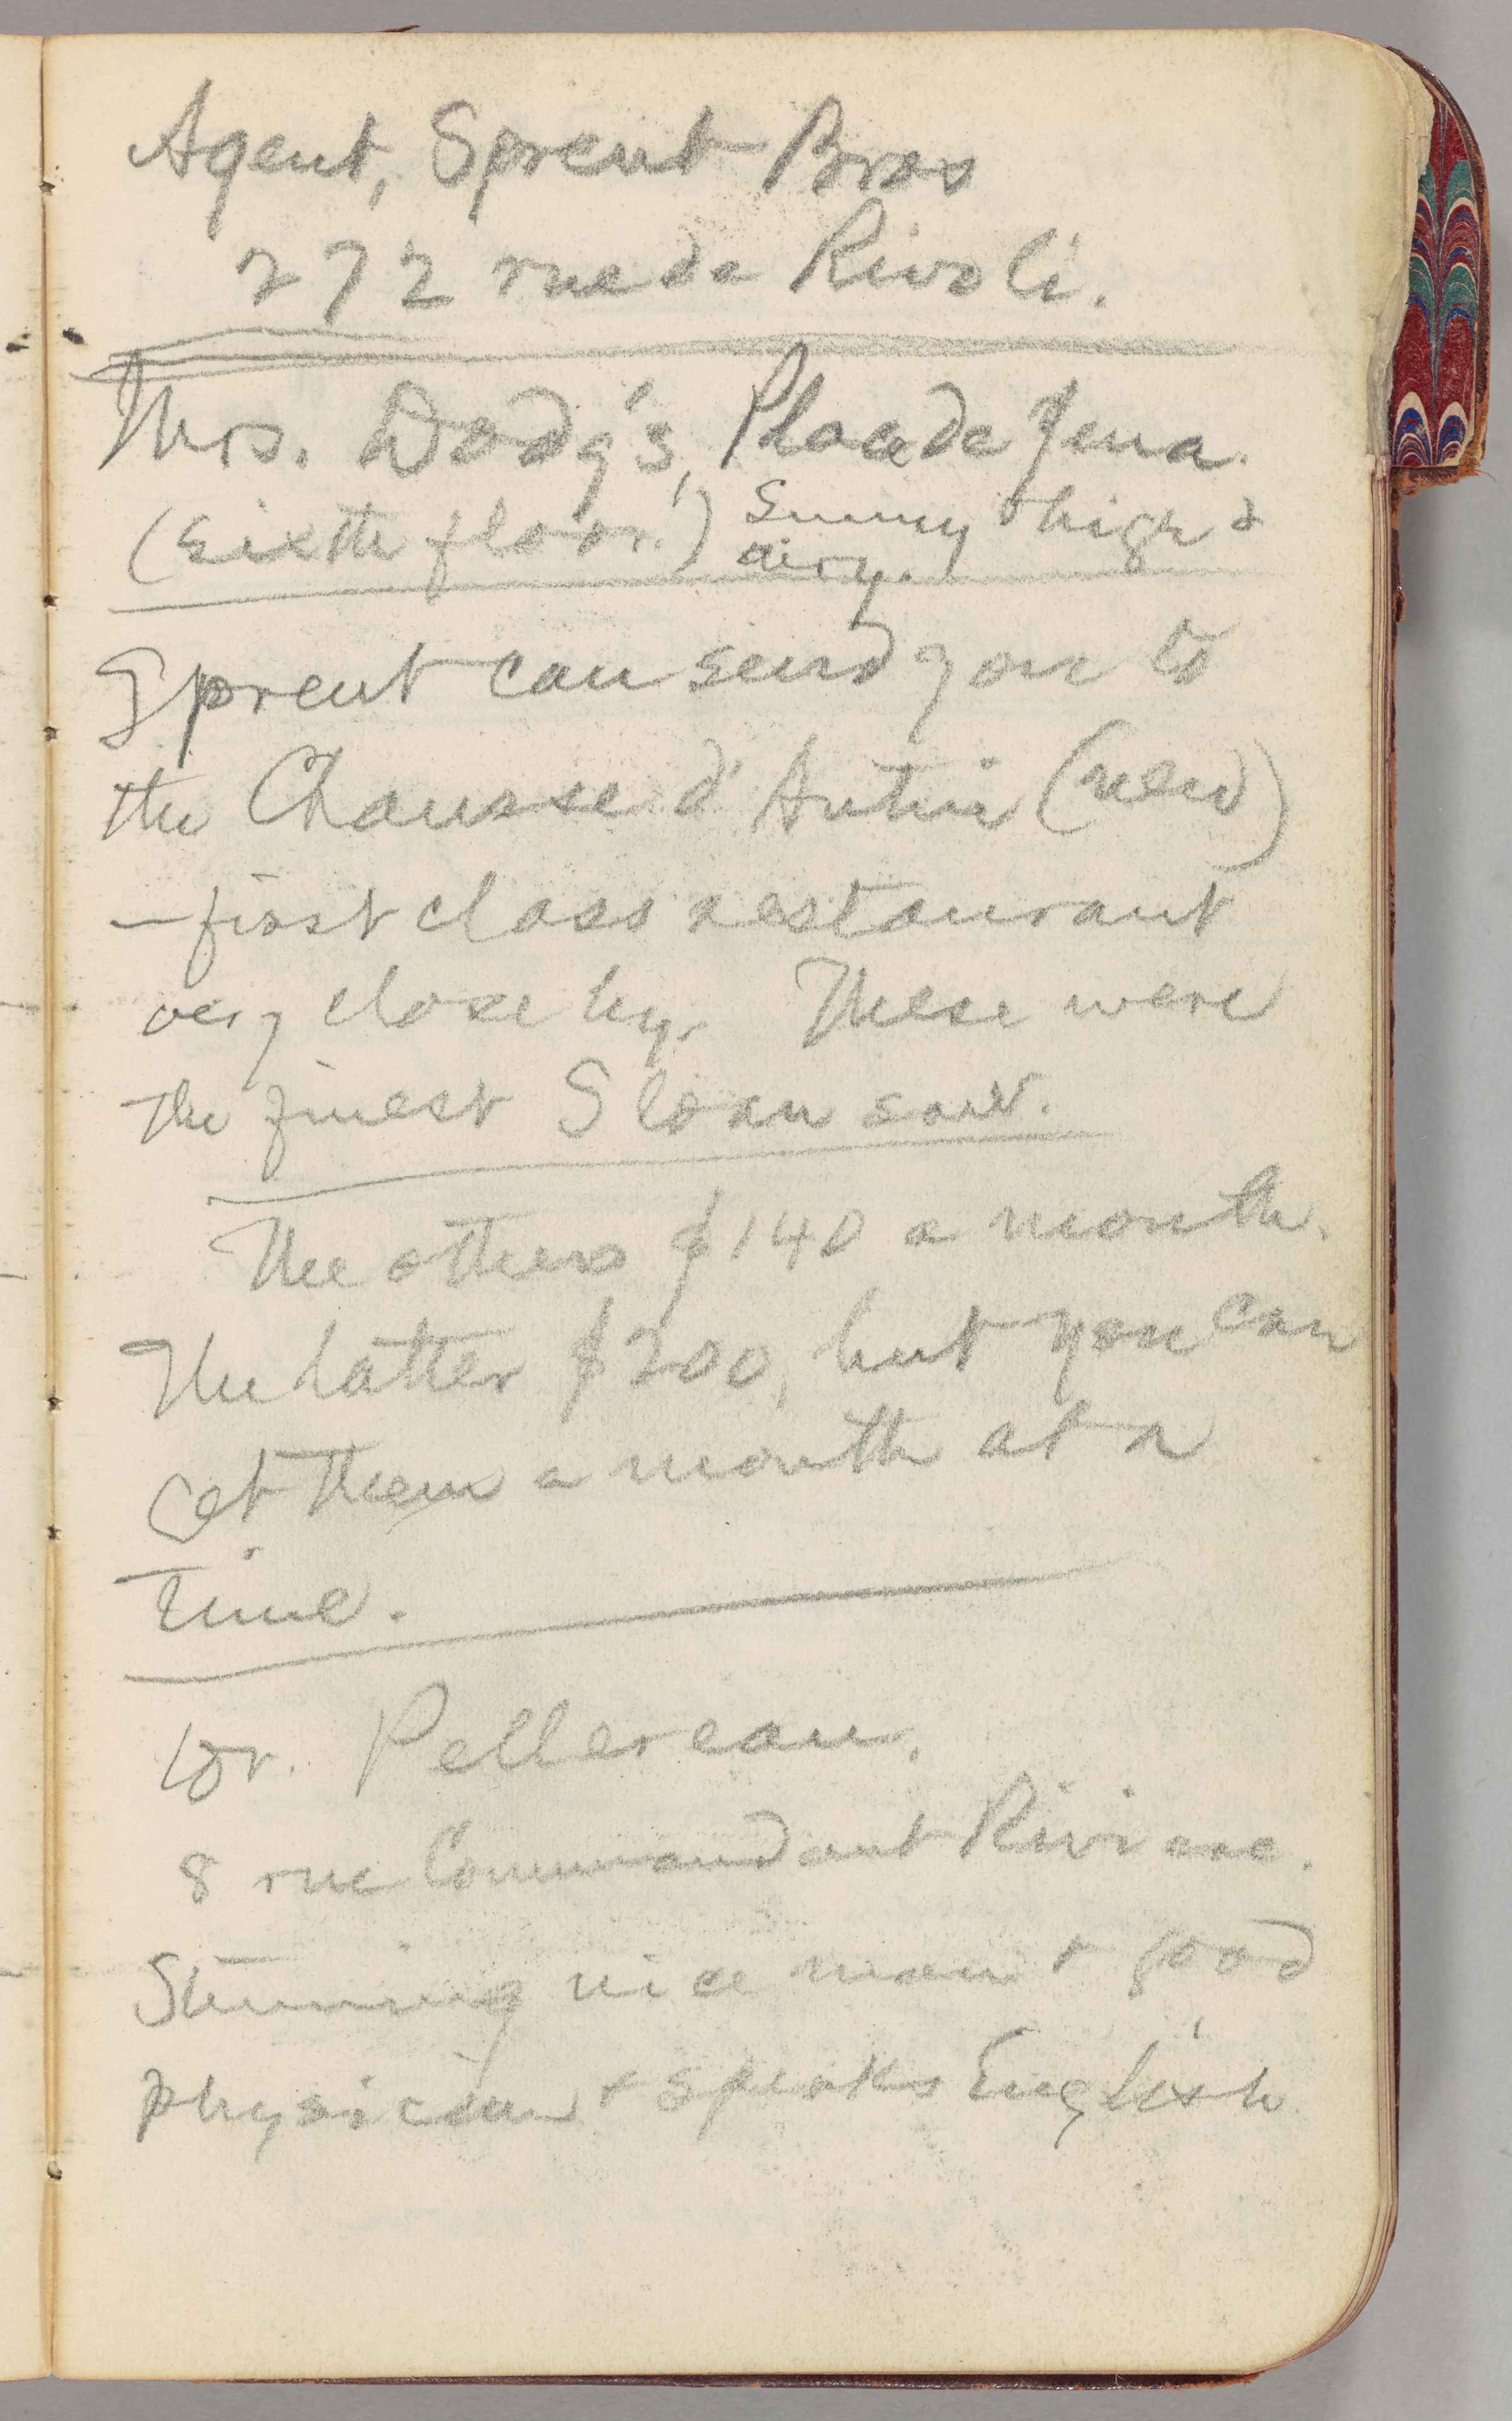 Agent, Sprent Bros
272 rue de Rivoli.
Mrs. Dodg's, Place de Jena.
(Sixth floor.) Sunny & high &
airy.
Sprent can send you to
the Chaussee d'Antin (new)
—first class restaurant
very close by. These were
the finest Sloan saw.
The others $140 a month.
The latter $200, but you can
get them a month at a
time.
Dr. Pellereau.
8 rue Commandant Riviere.
Stunning nice man & good
physician & speaks English